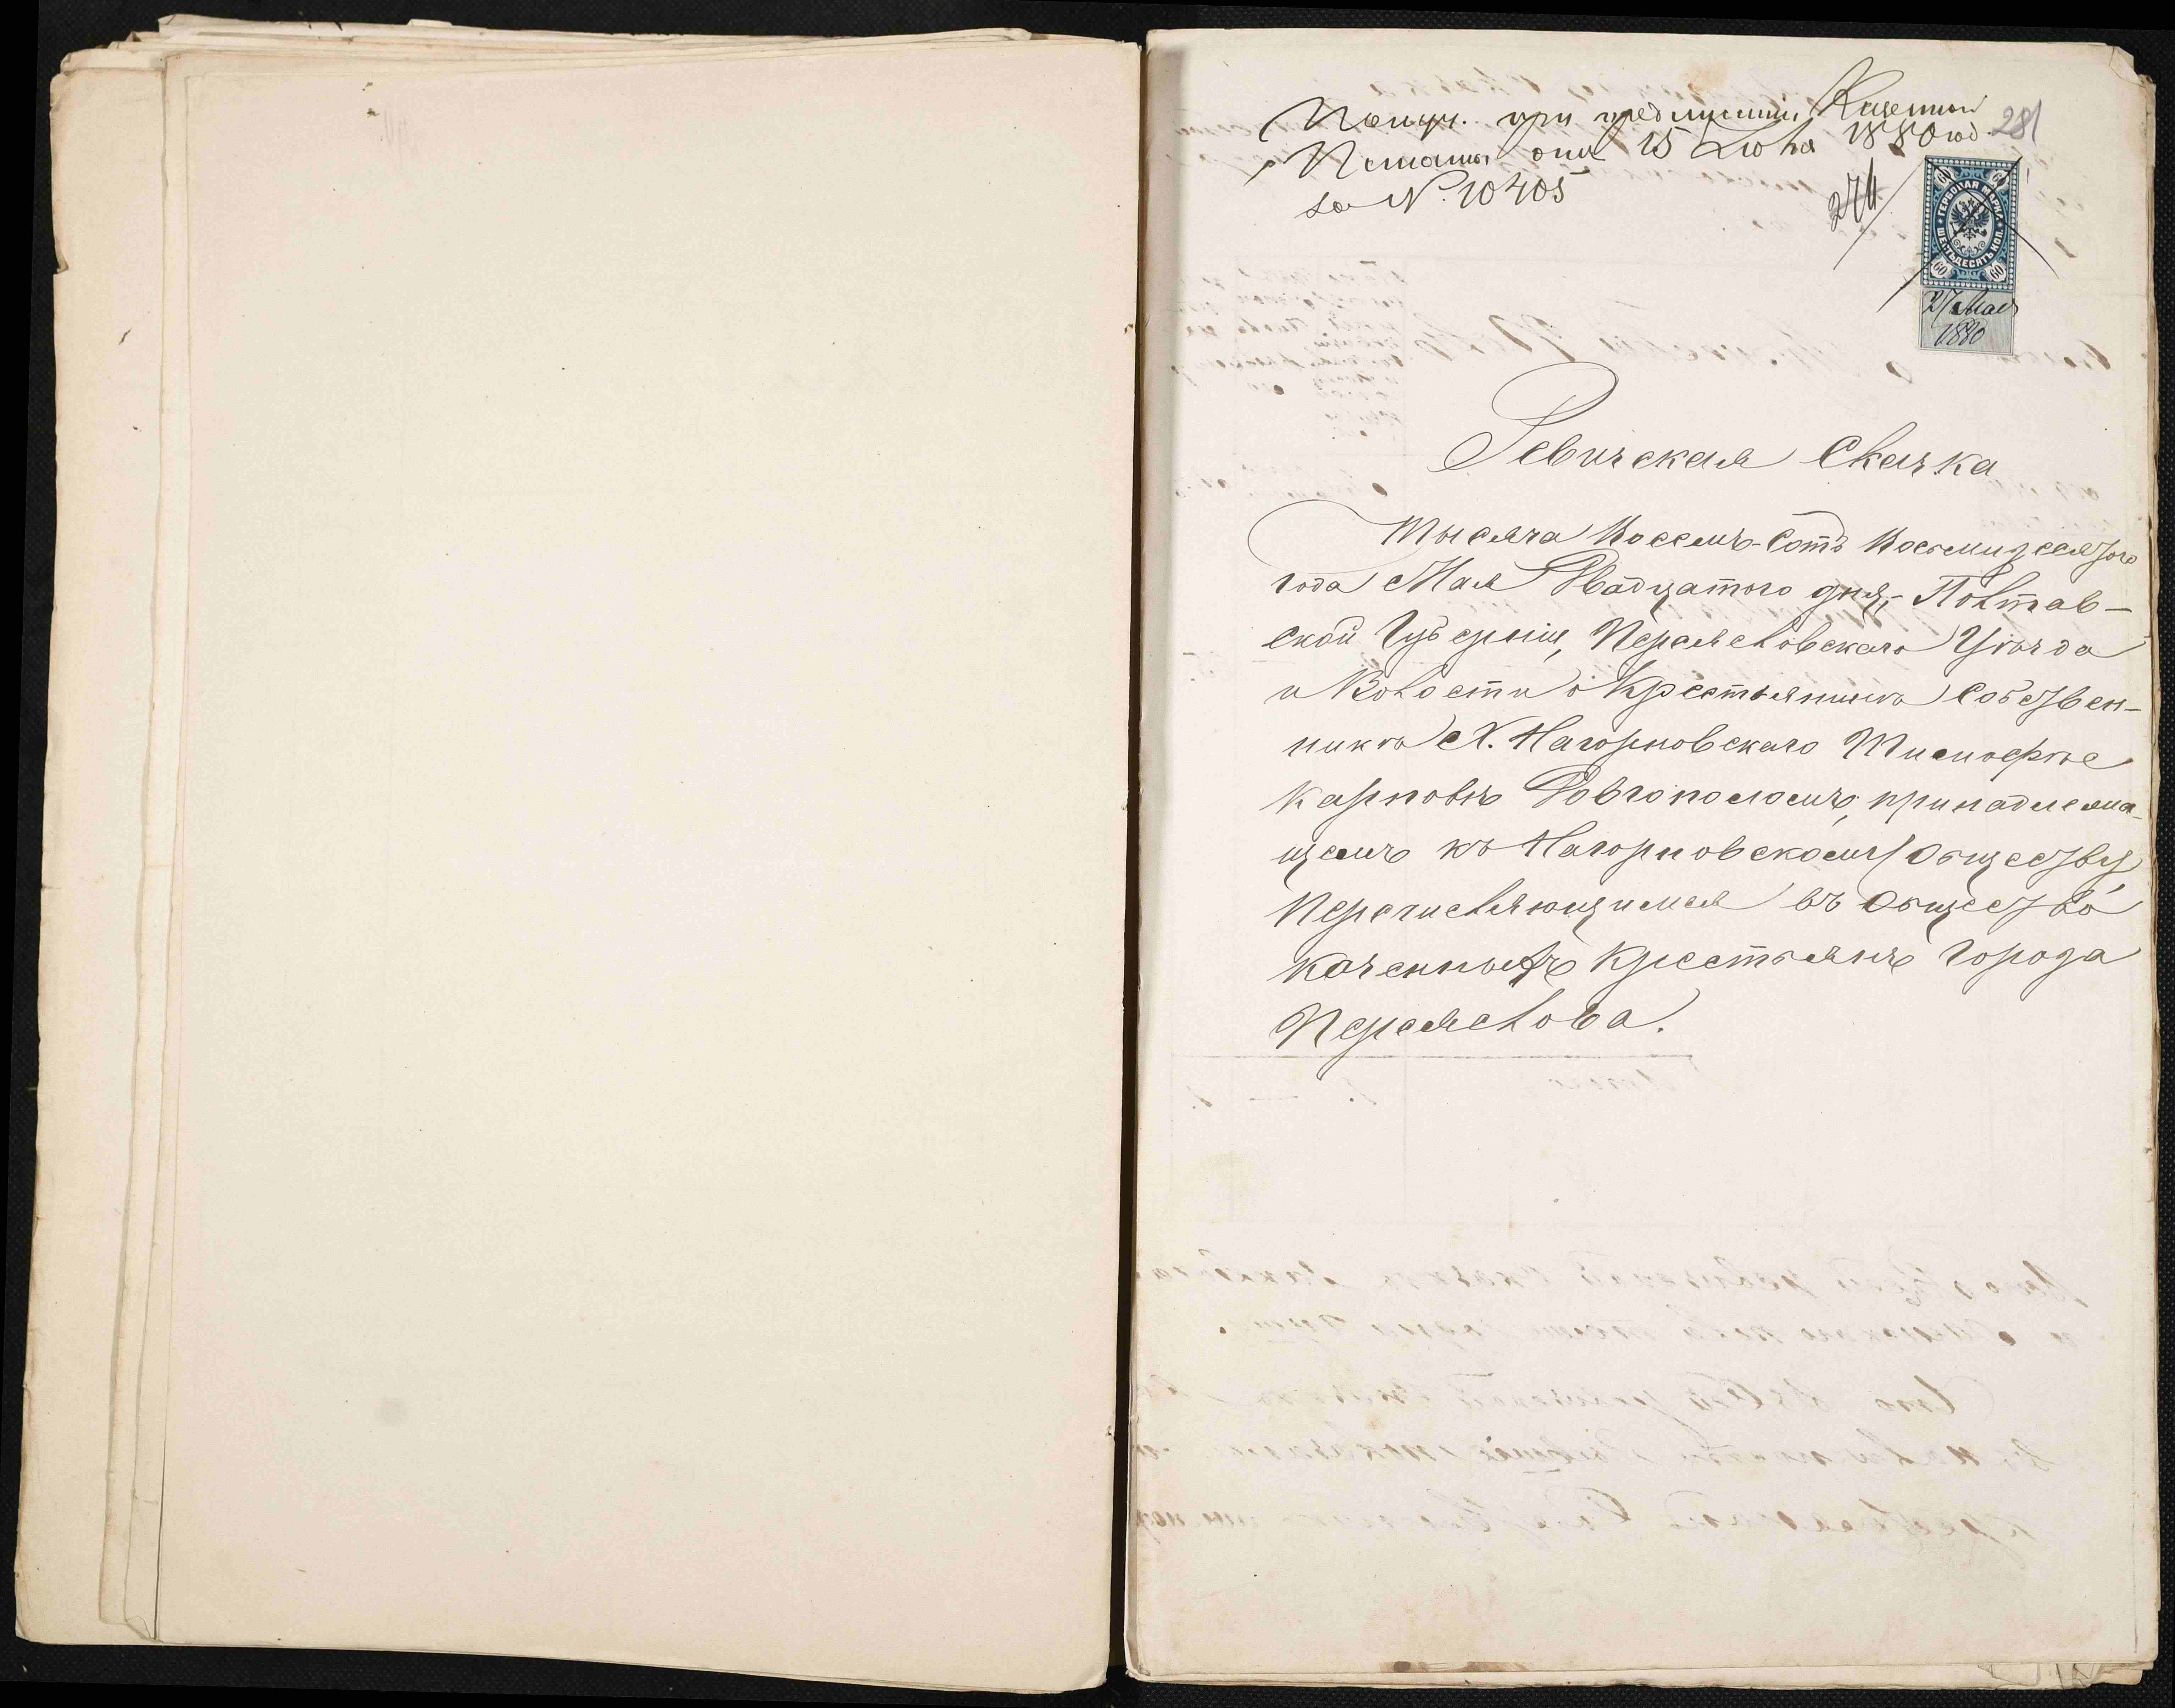 Получ. при предписании Казенной
Палаты от 15 Июля 1880 год.
за № 10405
281
274
ГЕРБОВАЯ МАРКА
ШЕСТЬДЕСЯТЪ КОП.
60 60
60 60
27 Мая
1880
Ревизская Сказка
Тысяча Восемь-Сотъ Восьмидесятого
года Мая Двадцатого дня, Полтав-
ской Губерніи, Переяславскаго Уѣзда
и Волости о Крестьянинѣ Собствен-
никѣ Х. Нагорновскаго Тимофѣе
Карповѣ Довгополомъ, принадлежа-
щемъ къ Нагорновскому Обществу,
Перечисляющимся въ Общество
Казенныхъ Крестьянъ Города
Переяслова.